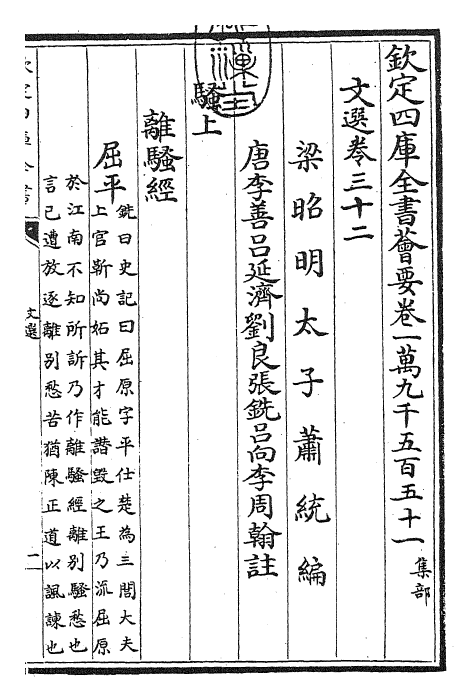 欽定四庫全書薈要卷一萬九千五百五十一 集部
文選卷三十二
梁昭明太子蕭統編
唐李善呂延濟劉良張銑呂向李周翰註
騷上
離騷經
屈平
銑曰史記曰屈原字平仕楚為三閭大夫
上官靳尚妬其才能譖毀之王乃流屈原
於江南不知所訴乃作離騷經離别騷愁也
言己遭放逐離别愁苦猶陳正道以諷諫也
文選
一